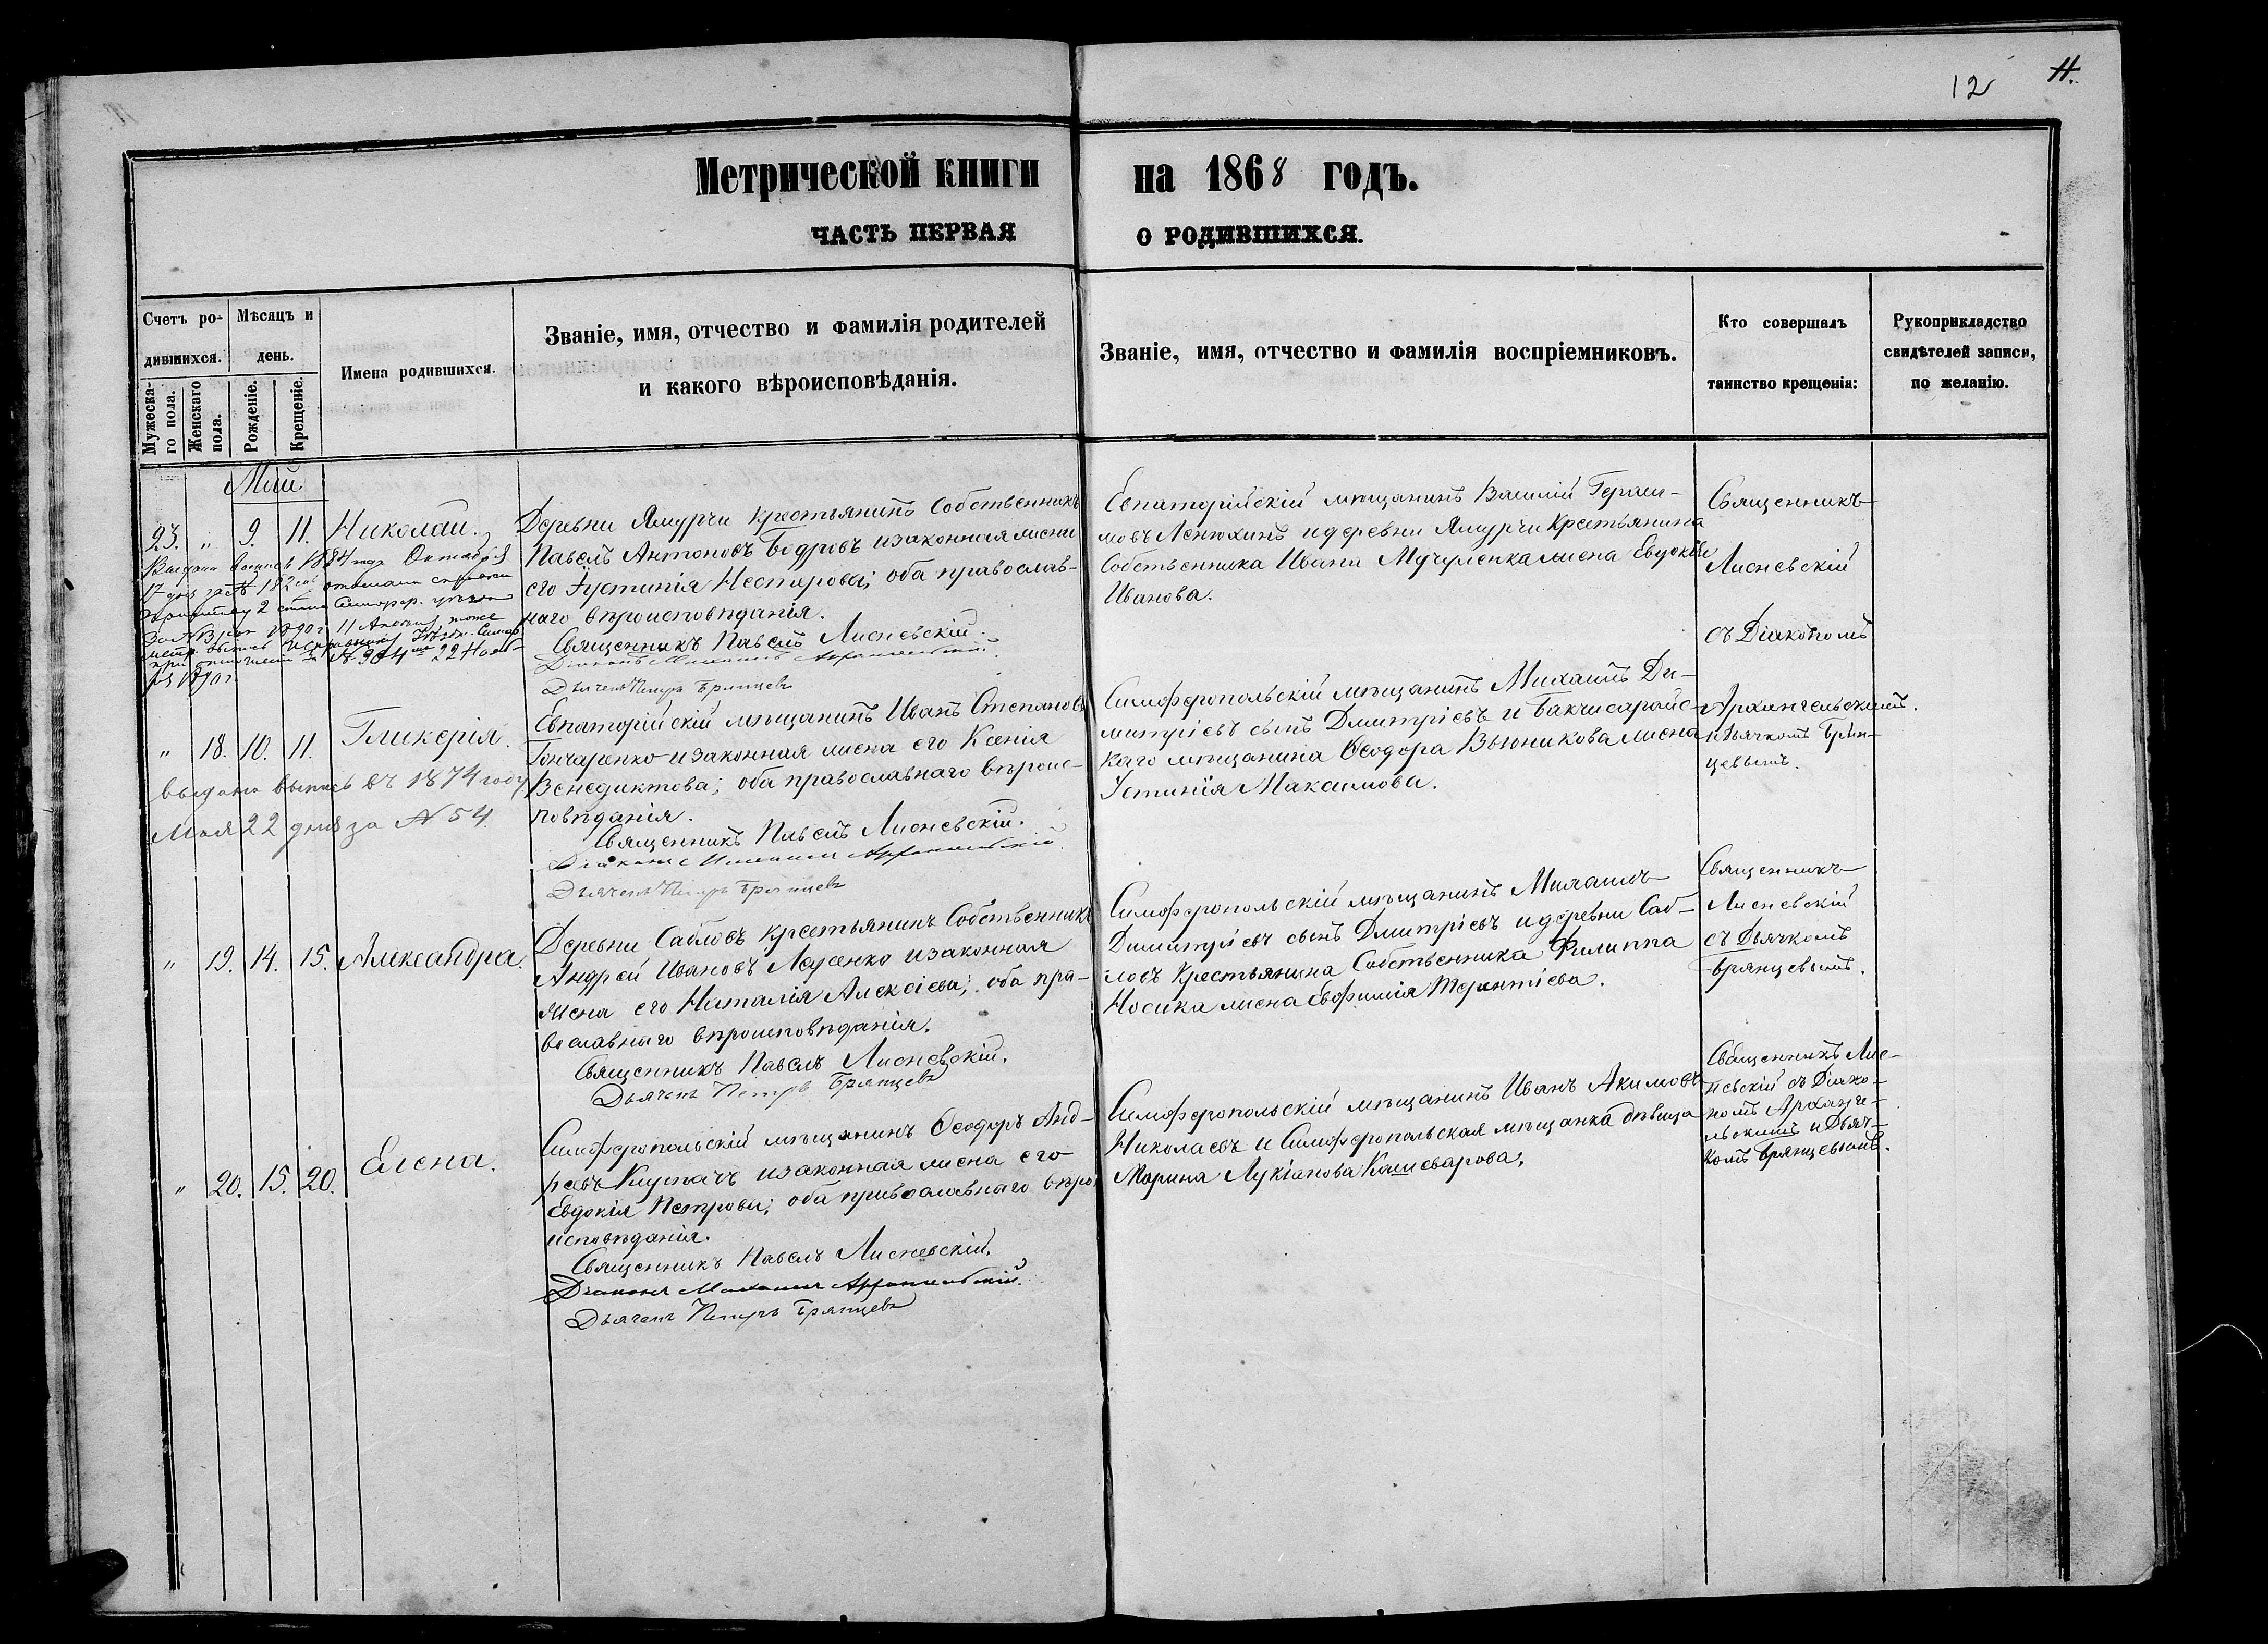 12 11.
Метрической книги на 1868 годъ.
ЧАСТЬ ПЕРВАЯ О РОДИВШИХСЯ.
Счетъ ро-
дившихся.
Мужеска-
го пола.
Женскаго
пола.
Мѣсяцъ и
день.
Рожденіе.
Крещеніе.
Имена родившихся.
Званіе, имя, отчество и фамилія родителей
и какого вѣроисповѣданія.
Званіе, имя, отчество и фамилія воспріемниковъ.
Кто совершалъ
таинство крещенія:
Рукоприкладство
свидѣтелей записи,
по желанію.
Май
23. „ 9. 11. Николай.
Выдана выпись 1884 года Октября
17 дня за № 182
2 Симфер.
1890 г. 11
выпись
при № 304 22 Нояб-
ря 1890 г.
Деревни Ямурчи крестьянинъ Собственникъ
Павелъ Антоновъ Бодровъ изаконная жена
его Іустинія Нестерова; оба православ-
наго вѣроисповѣданія.
Священникъ Павелъ Лисневскій.
Діаконъ Михаилъ Архангельскій.
Дьячекъ Петръ Брянцевъ
Евпаторійскій мѣщанинъ Василій Гераси-
мовъ Ленюхинъ идеревни Ямурчи Крестьянина
Собственника Ивана Мучуленка жена Евдокія
Иванова.
Священникъ
Лисневскій
съ Діакономъ
Архангельскимъ.
и Дьячкомъ Брян-
цевымъ.
„ 18. 10. 11. Гликерія.
выдана выпись въ 1874 году
Мая 22 дня за № 54.
Евпаторійскій мѣщанинъ Иванъ Степановъ
Гончаренко изаконная жена его Ксенія
Венедиктова; оба православнаго вѣроис-
повѣданія.
Священникъ Павелъ Лисневскій.
Діаконъ Михаилъ Архангельскій.
Дьячекъ Петръ Брянцевъ
Симферопольскій мѣщанинъ Михаилъ Ди-
митріевъ сынъ Дмитріевъ и Бакчисарайс-
каго мѣщанина Ѳеодора Вьюникова жена
Устинія Максимова.
„ 19. 14. 15. Александра.
Деревни Сабловъ крестьянинъ Собственникъ
Андрей Ивановъ Лазенко изаконная
жена его Наталія Алексіева; оба пра-
вославнаго вѣроисповѣданія.
Священникъ Павелъ Лисневскій.
Дьячекъ Петръ Брянцевъ
Симферопольскій мѣщанинъ Михаилъ
Димитріевъ сынъ Дмитріевъ идеревни Саб-
ловъ Крестьянина Собственника Филиппа
Носика жена Евфимія Терентіева.
Священникъ
Лисневскій
съ Дьячкомъ
Брянцевымъ.
„ 20. 15. 20. Елена.
Симферопольскій мѣщанинъ Ѳеодоръ Анд-
реевъ изаконная жена его
Евдокія Петрова; оба православнаго вѣро-
исповѣданія.
Священникъ Павелъ Лисневскій.
Діаконъ Михаилъ Архангельскій.
Дьячекъ Петръ Брянцевъ
Симферопольскій мѣщанинъ Иванъ Акимовъ
Николаевъ и Симферопольская мѣщанка дѣвица
Марина Лукіанова Кашеварова.
Священникъ Лис-
невскій съ Діако-
номъ Арханге-
льскимъ и Дьяч-
комъ Брянцевымъ.